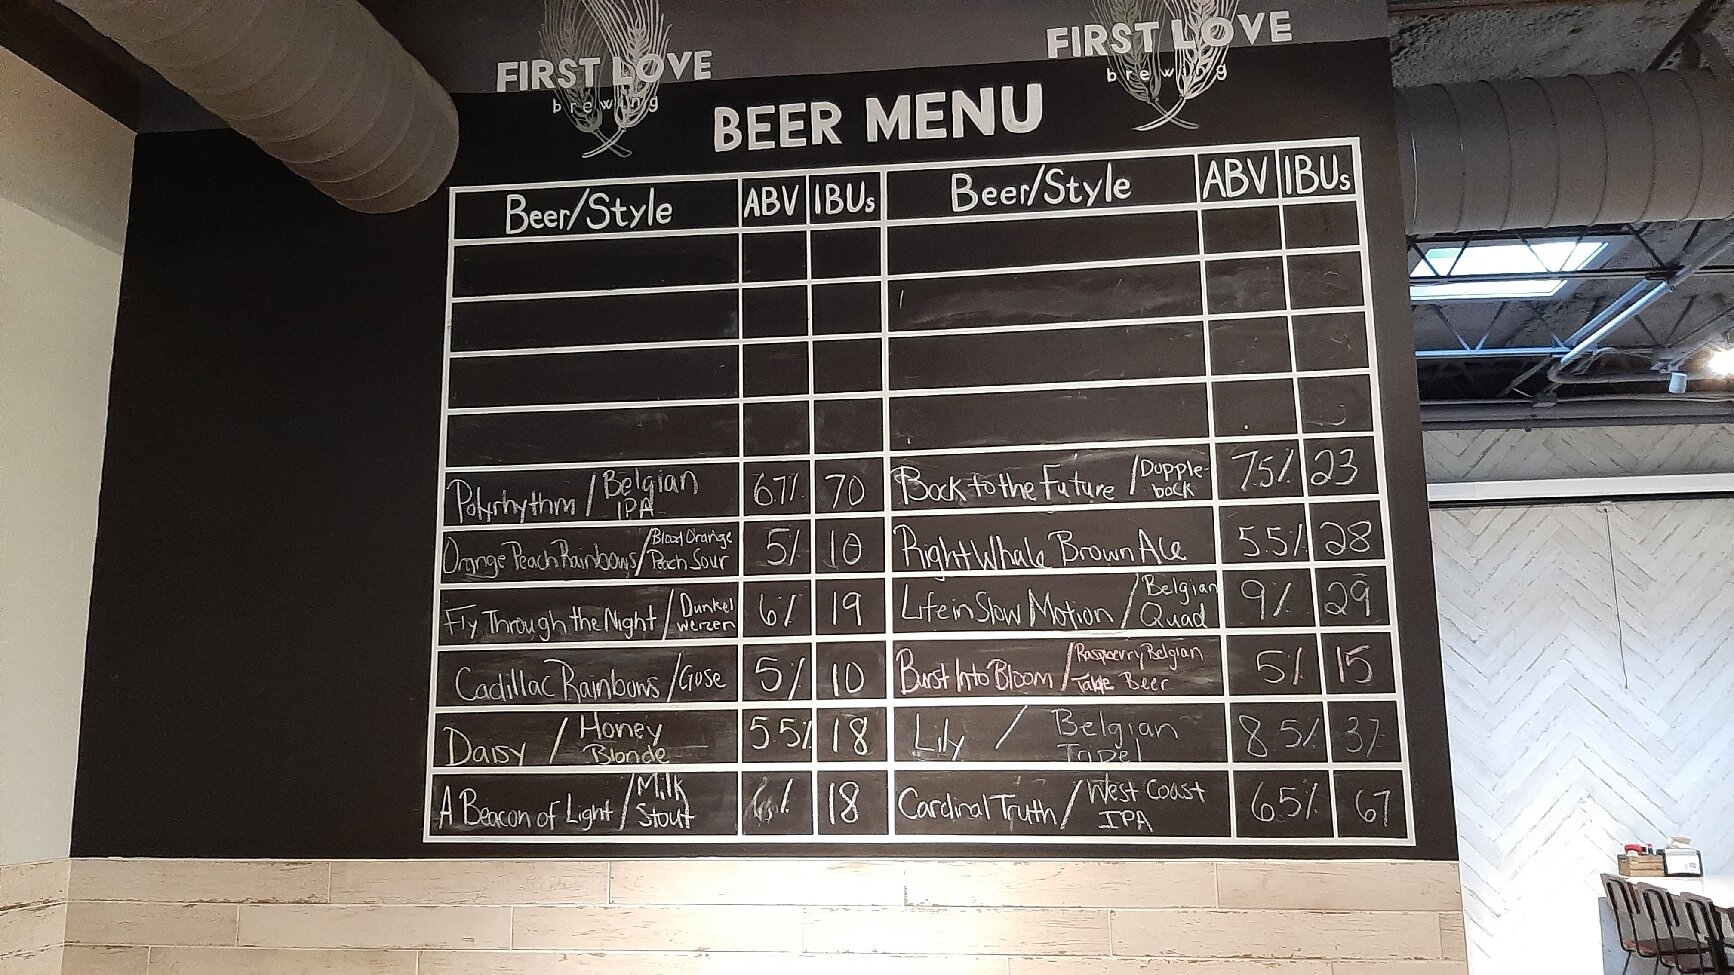 FIRST LOVE
brewing
FIRST LOVE
brewing
BEER MENU
Beer/Style ABV IBUs Beer/Style ABV IBUs
Polyrhythm / Belgian IPA 6.7% 70
Orange Peach Rainbows / Blood Orange Peach Sour 5% 10
Fly Through the Night / Dunkel weizen 6% 19
Cadillac Rainbows / Gose 5% 10
Daisy / Honey Blonde 5.5% 18
A Beacon of Light / Milk Stout % 18
Back to the Future / Dopple-bock 7.5% 23
Right Whale Brown Ale 5.5% 28
Life in Slow Motion / Belgian Quad 9% 29
Burst Into Bloom / Raspberry Belgian Table Beer 5% 15
Lily / Belgian Tripel 8.5% 37
Cardinal Truth / West Coast IPA 6.5% 67